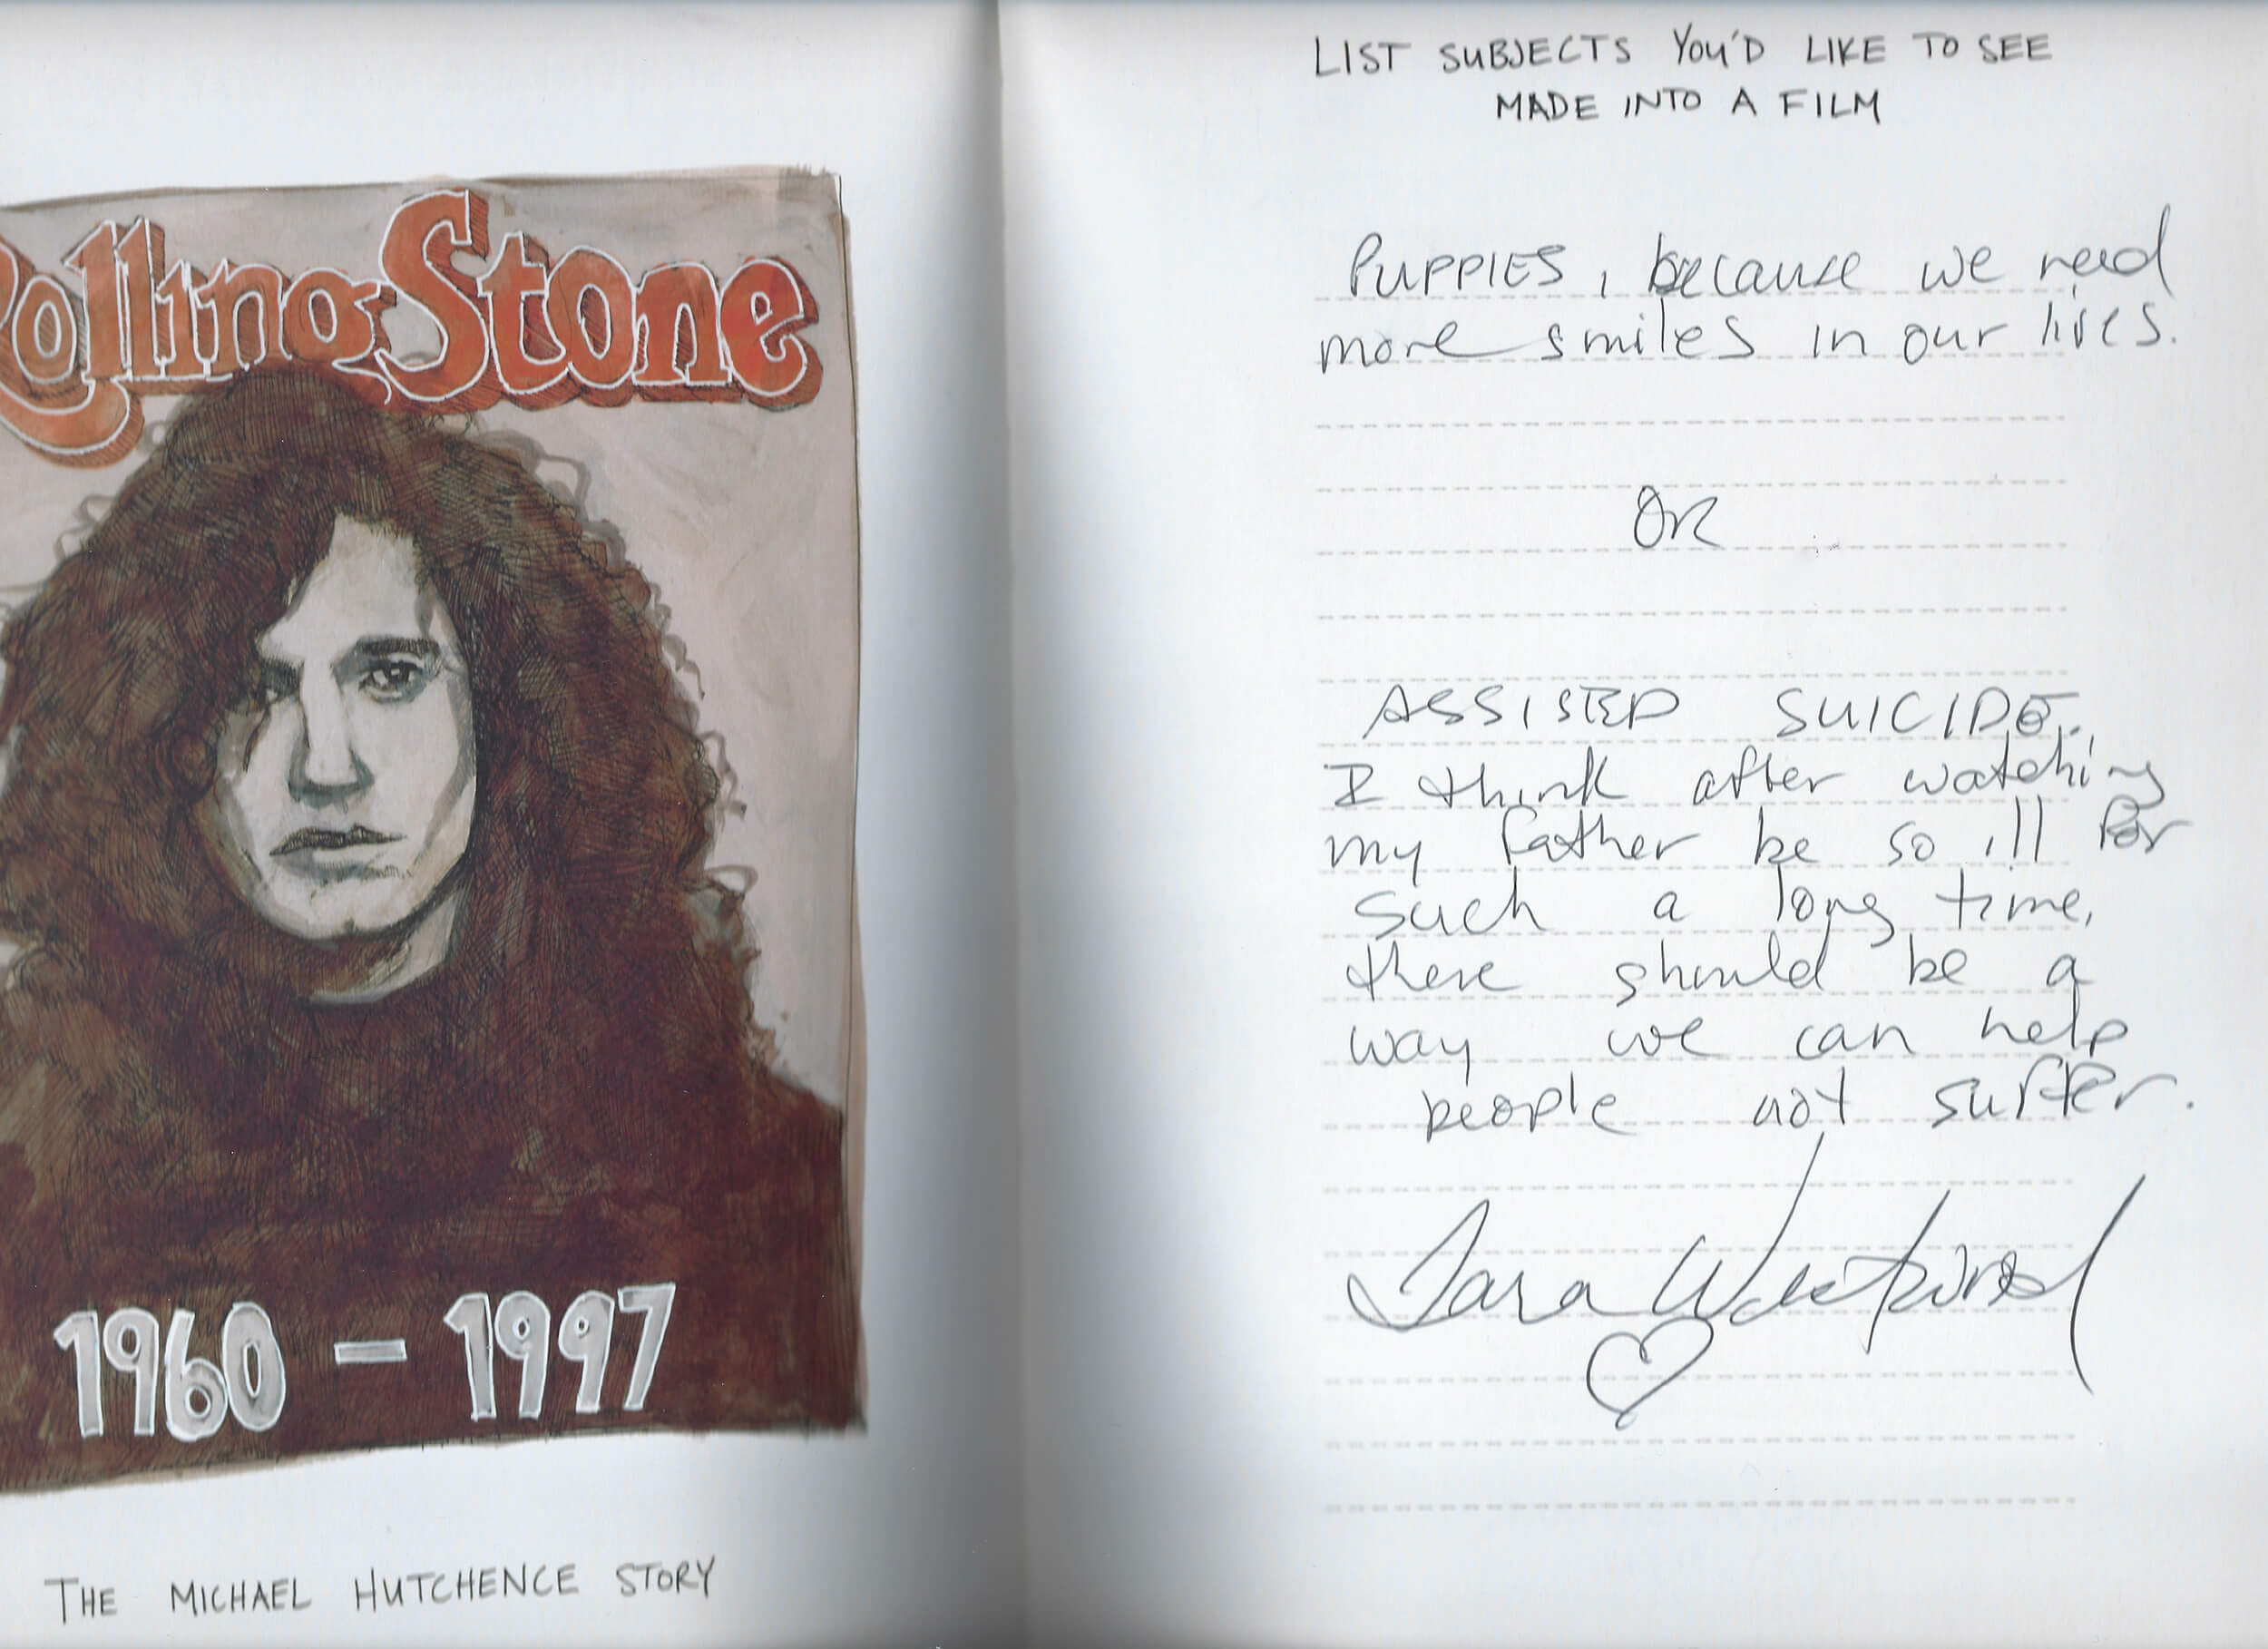 Rolling Stone
1960 - 1997
THE MICHAEL HUTCHENCE STORY
LIST SUBJECTS YOU'D LIKE TO SEE
MADE INTO A FILM
PUPPIES, because we need
more smiles in our lives.
OR
ASSISTED SUICIDE.
I think after watching
my father be so ill for
such a long time,
there should be a
way we can help
people not suffer.
Tara